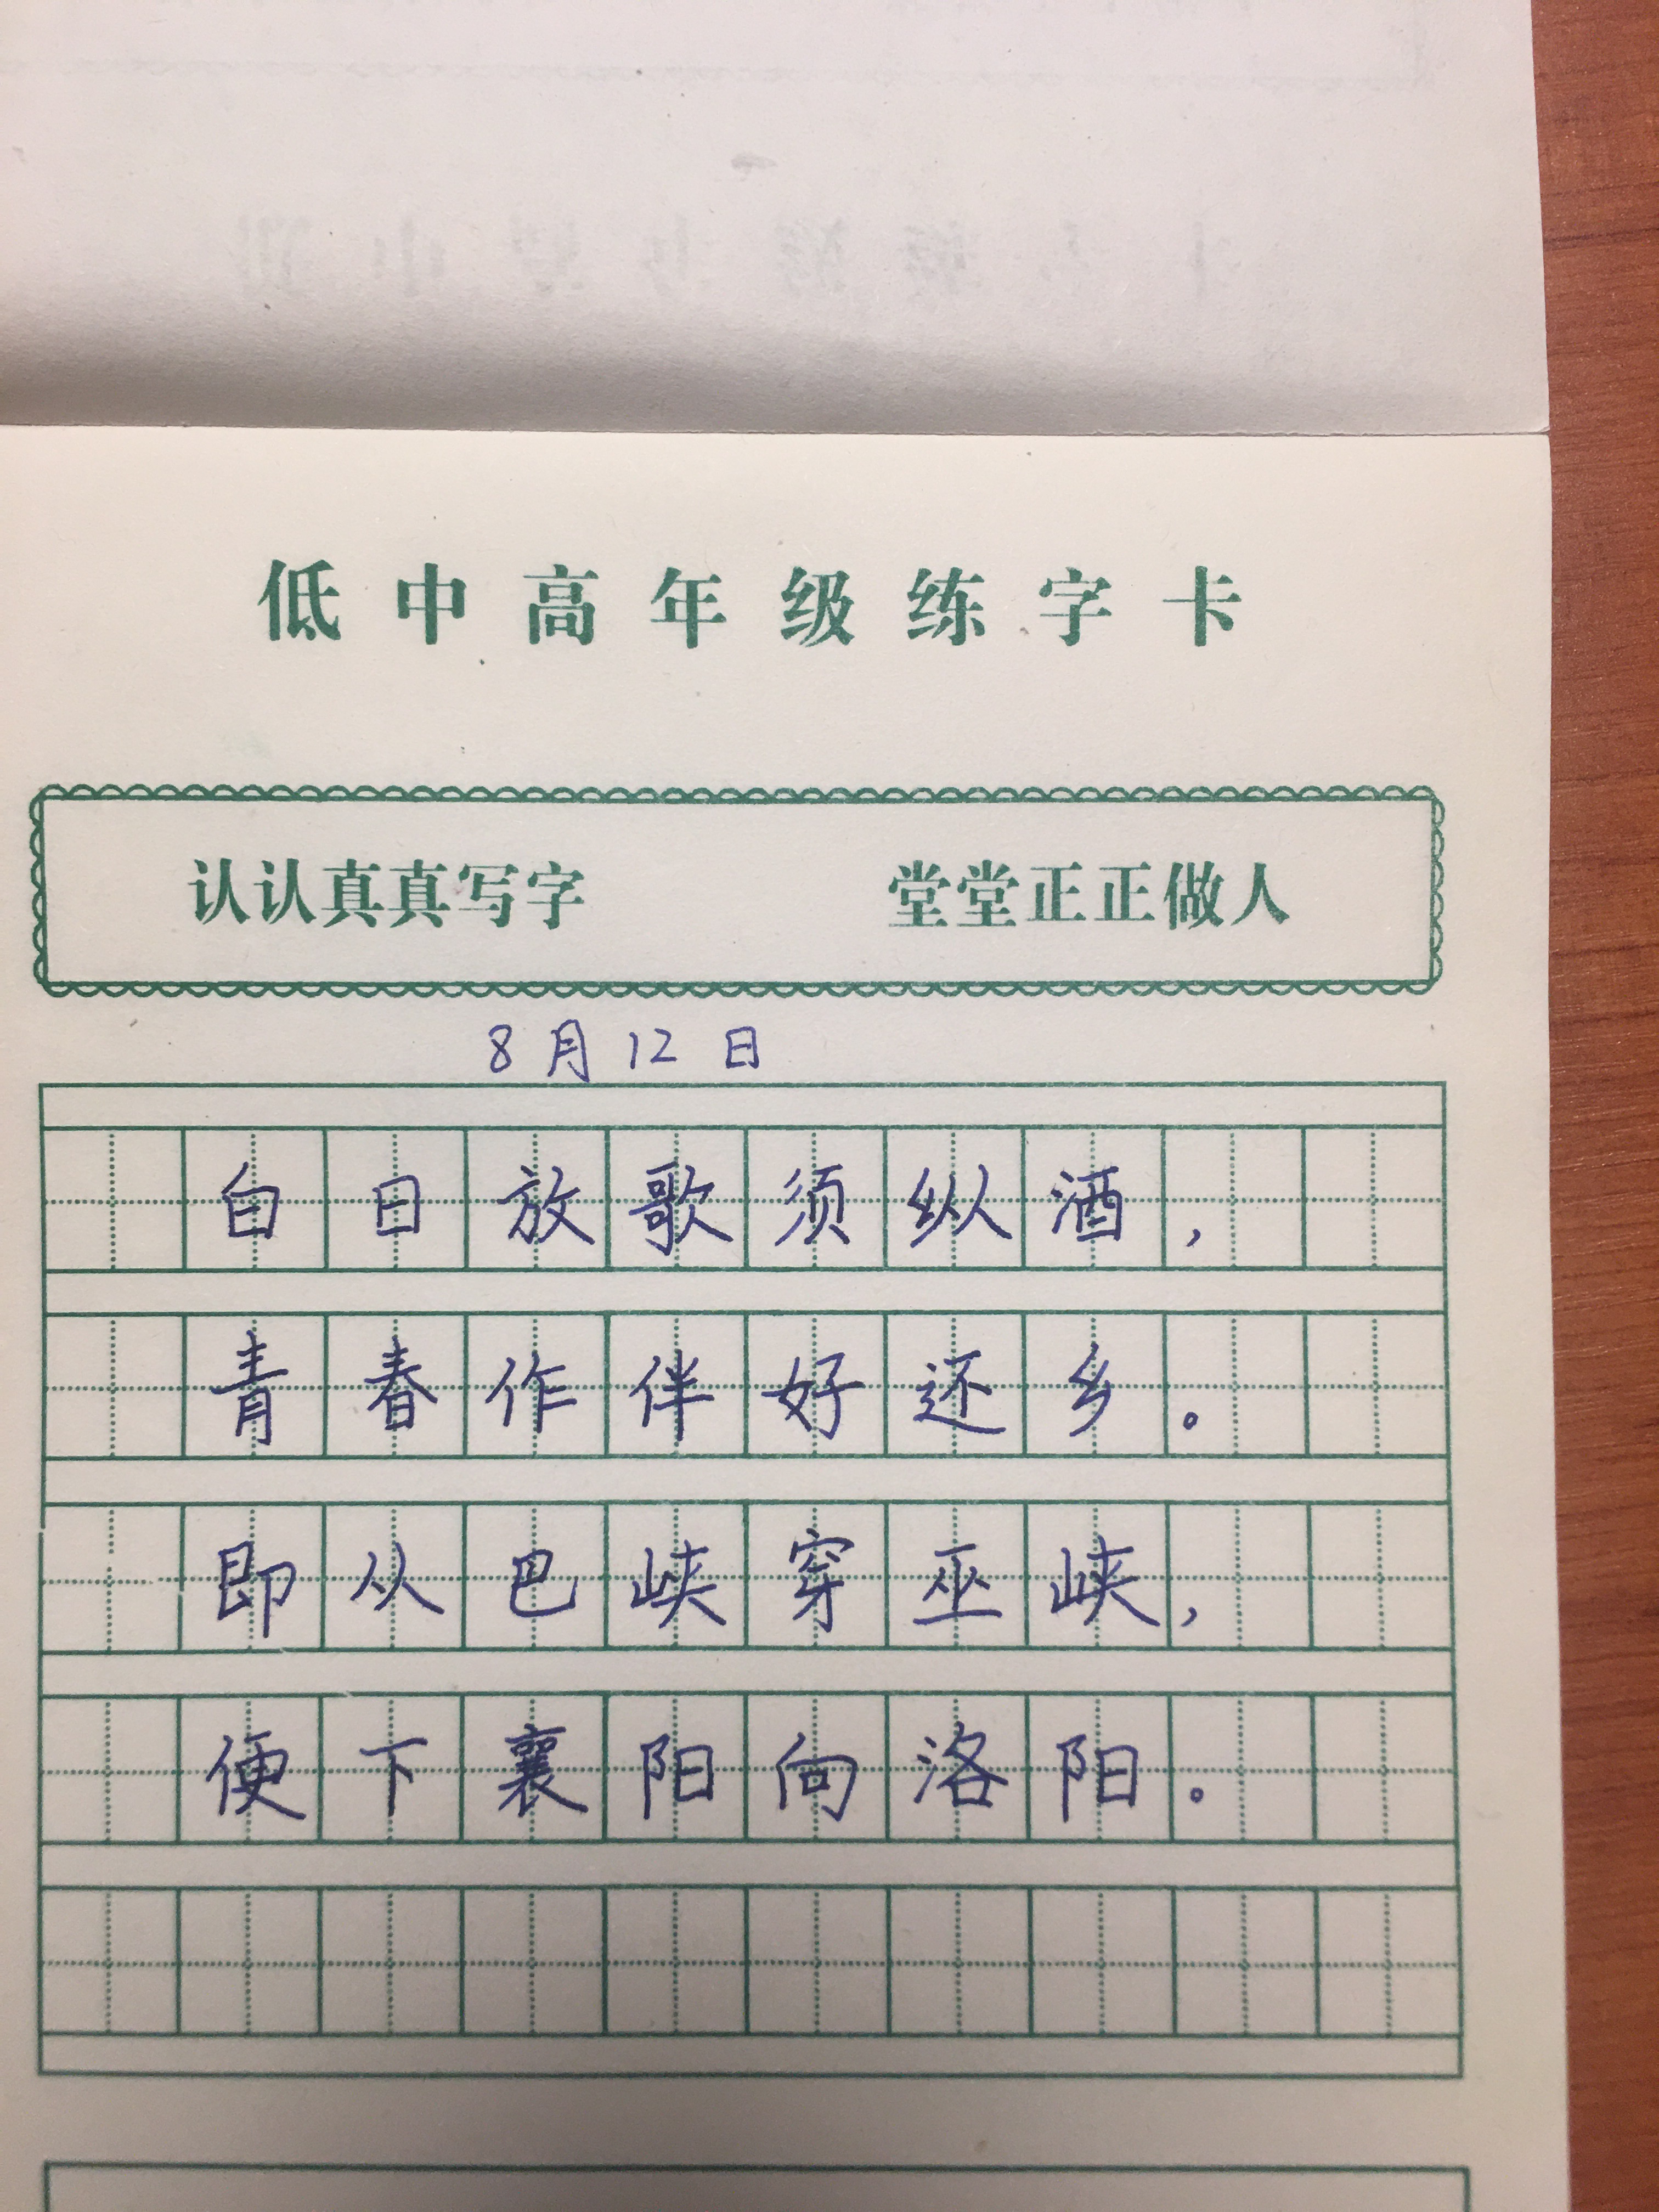 低中高年级练字卡
认认真真写字 堂堂正正做人
8月12日
白日放歌须纵酒，
青春作伴好还乡。
即从巴峡穿巫峡，
便下襄阳向洛阳。